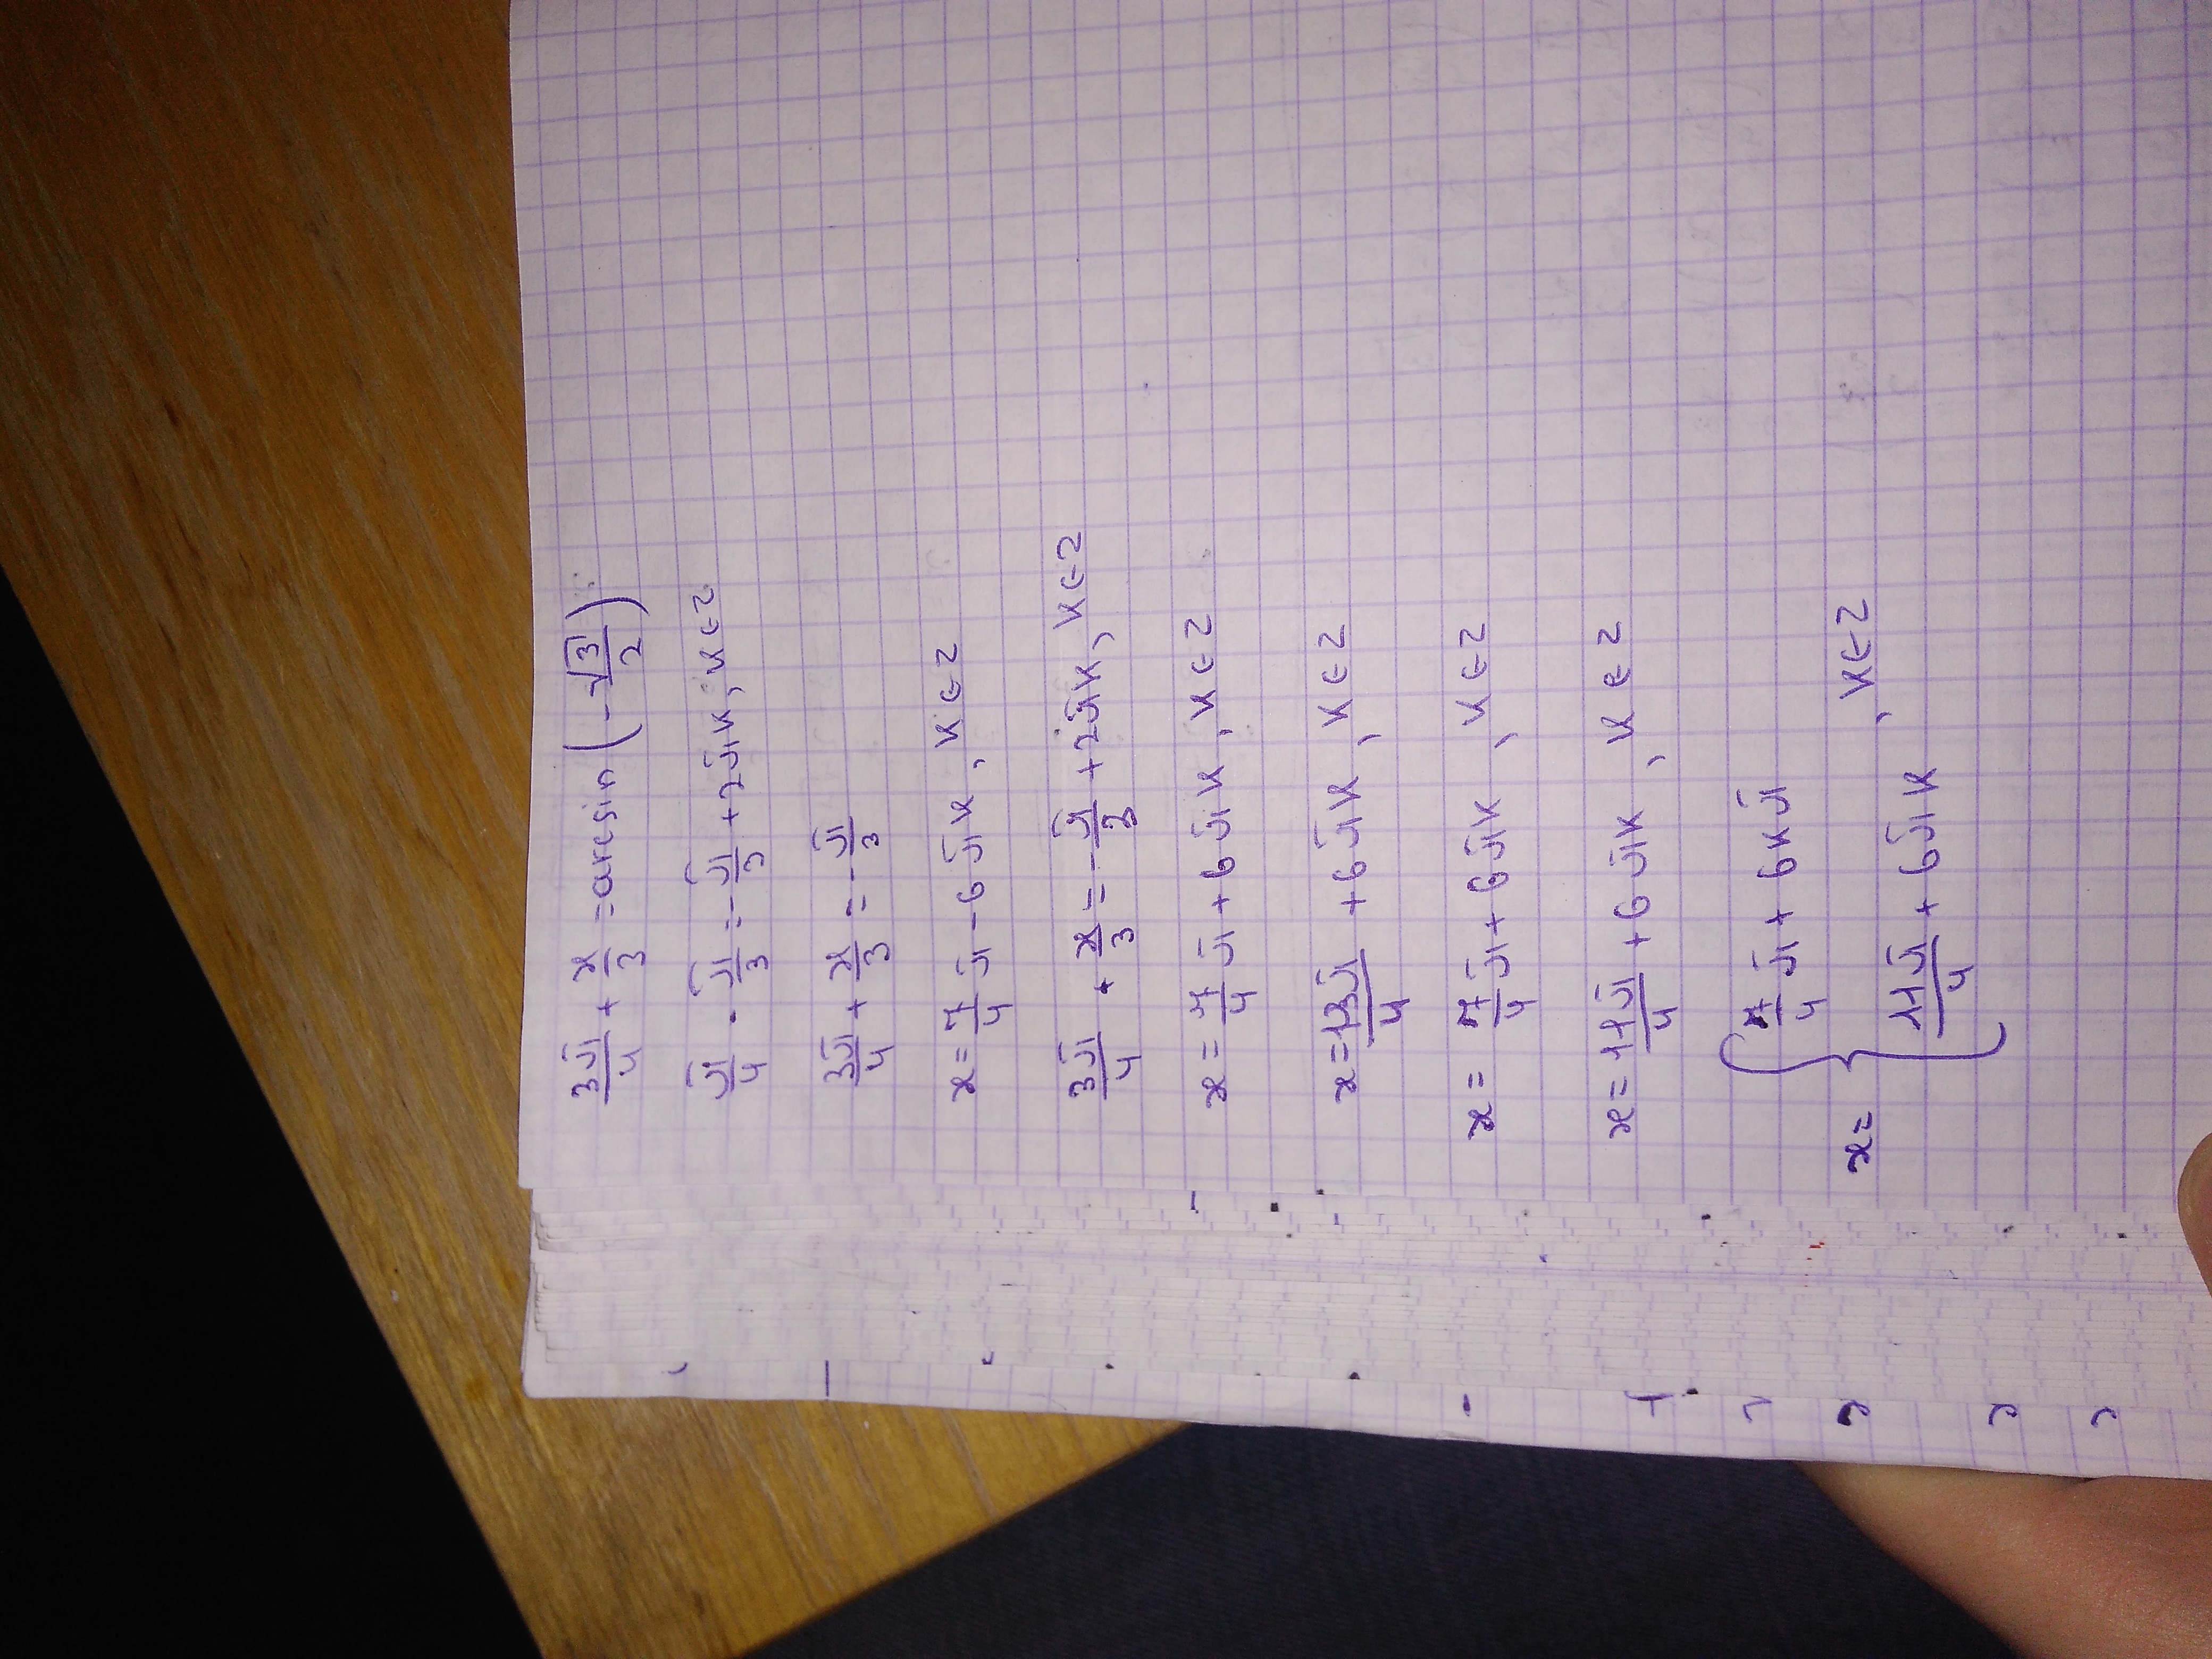 3π/4 + x/3 = arcsin(-√3/2)
π/4 - π/3 = -π/3 + 2πk, k∈Z
3π/4 + x/3 = -π/3
x = 7/4 π - 6πk, k∈Z
3π/4 + x/3 = -π/3 + 2πk, k∈Z
x = 7/4 π + 6πk, k∈Z
x = 13π/4 + 6πk, k∈Z
x = 7/4 π + 6πk, k∈Z
x = 11π/4 + 6πk, k∈Z
x = { 7/4 π + 6kπ
11π/4 + 6πk , k∈Z